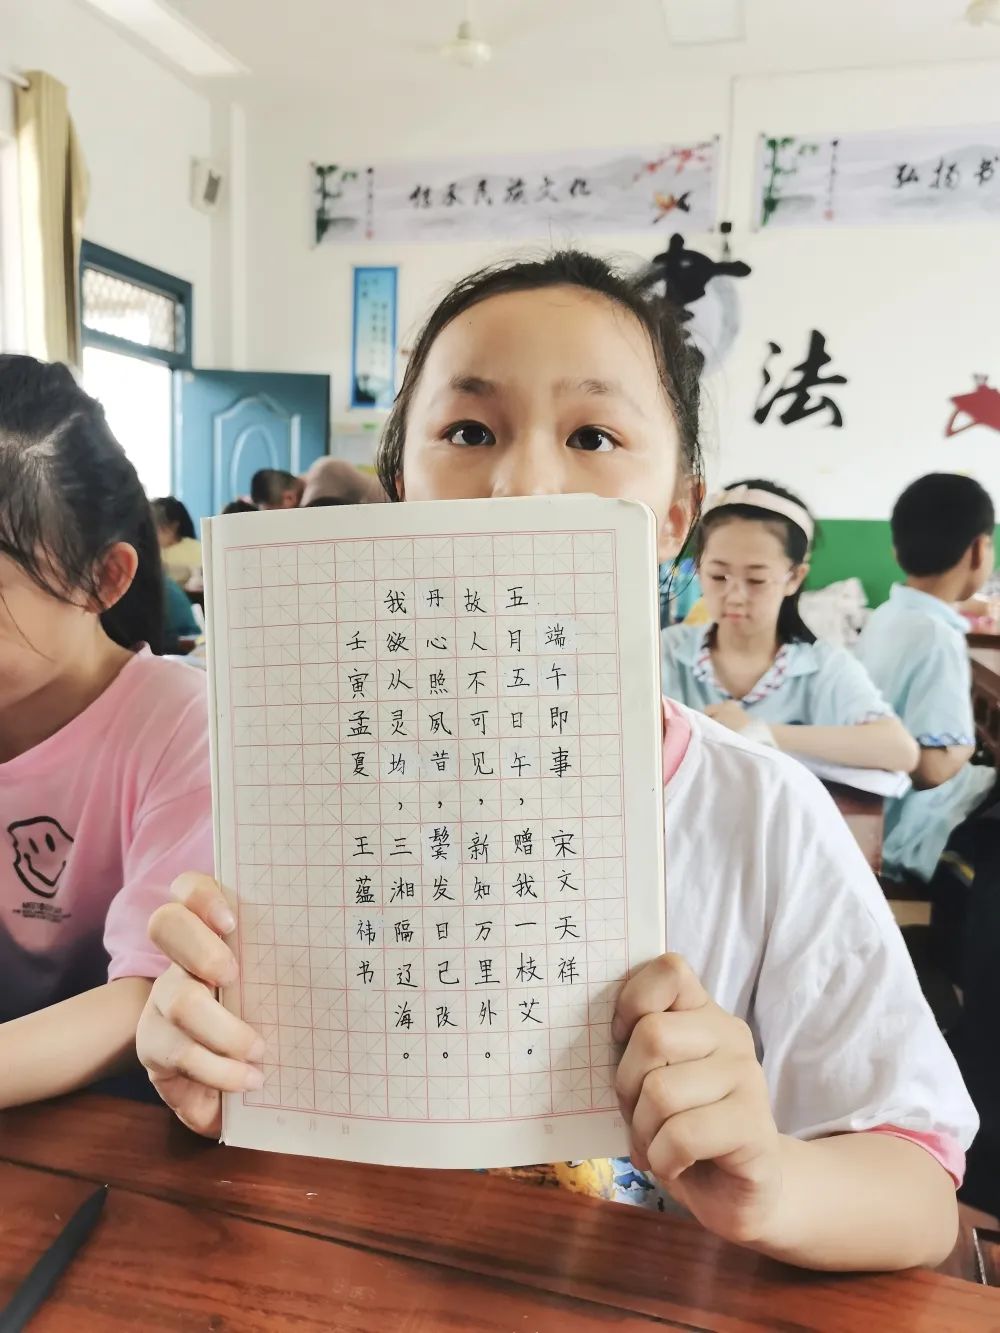 传承民族文化
弘扬书
書法
端午即事 宋文天祥
五月五日午，赠我一枝艾。
故人不可见，新知万里外。
丹心照夙昔，鬓发日已改。
我欲从灵均，三湘隔辽海。
壬寅孟夏 王蕴祎书
年 月 日